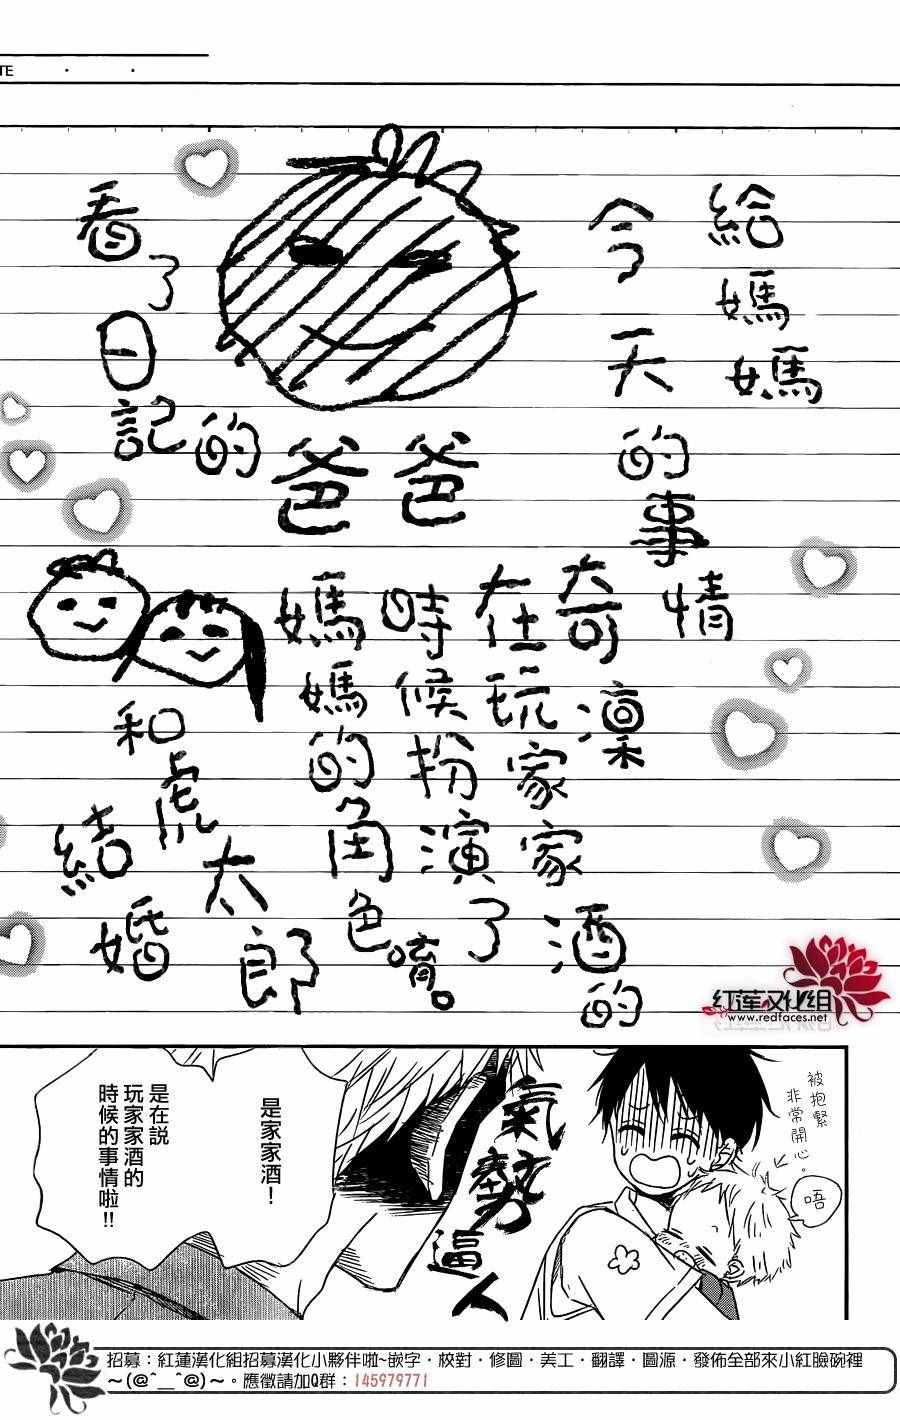 TE
給媽媽
今天的事情
奇凛
在玩家家酒的
時候扮演了
媽媽的角色唷。
爸爸
看了日記的
和虎太郎
結婚
紅蓮汉化組
www.redfaces.net
被抱緊
非常開心。
唔
氣勢逼人
是家家酒！
是在說
玩家家酒的
時候的事情啦!!
招募：紅蓮漢化組招募漢化小夥伴啦~嵌字・校對・修圖・美工・翻譯・圖源・發佈全部來小紅臉碗裡
～(@^__^@)～。應徵請加Q群：145979771